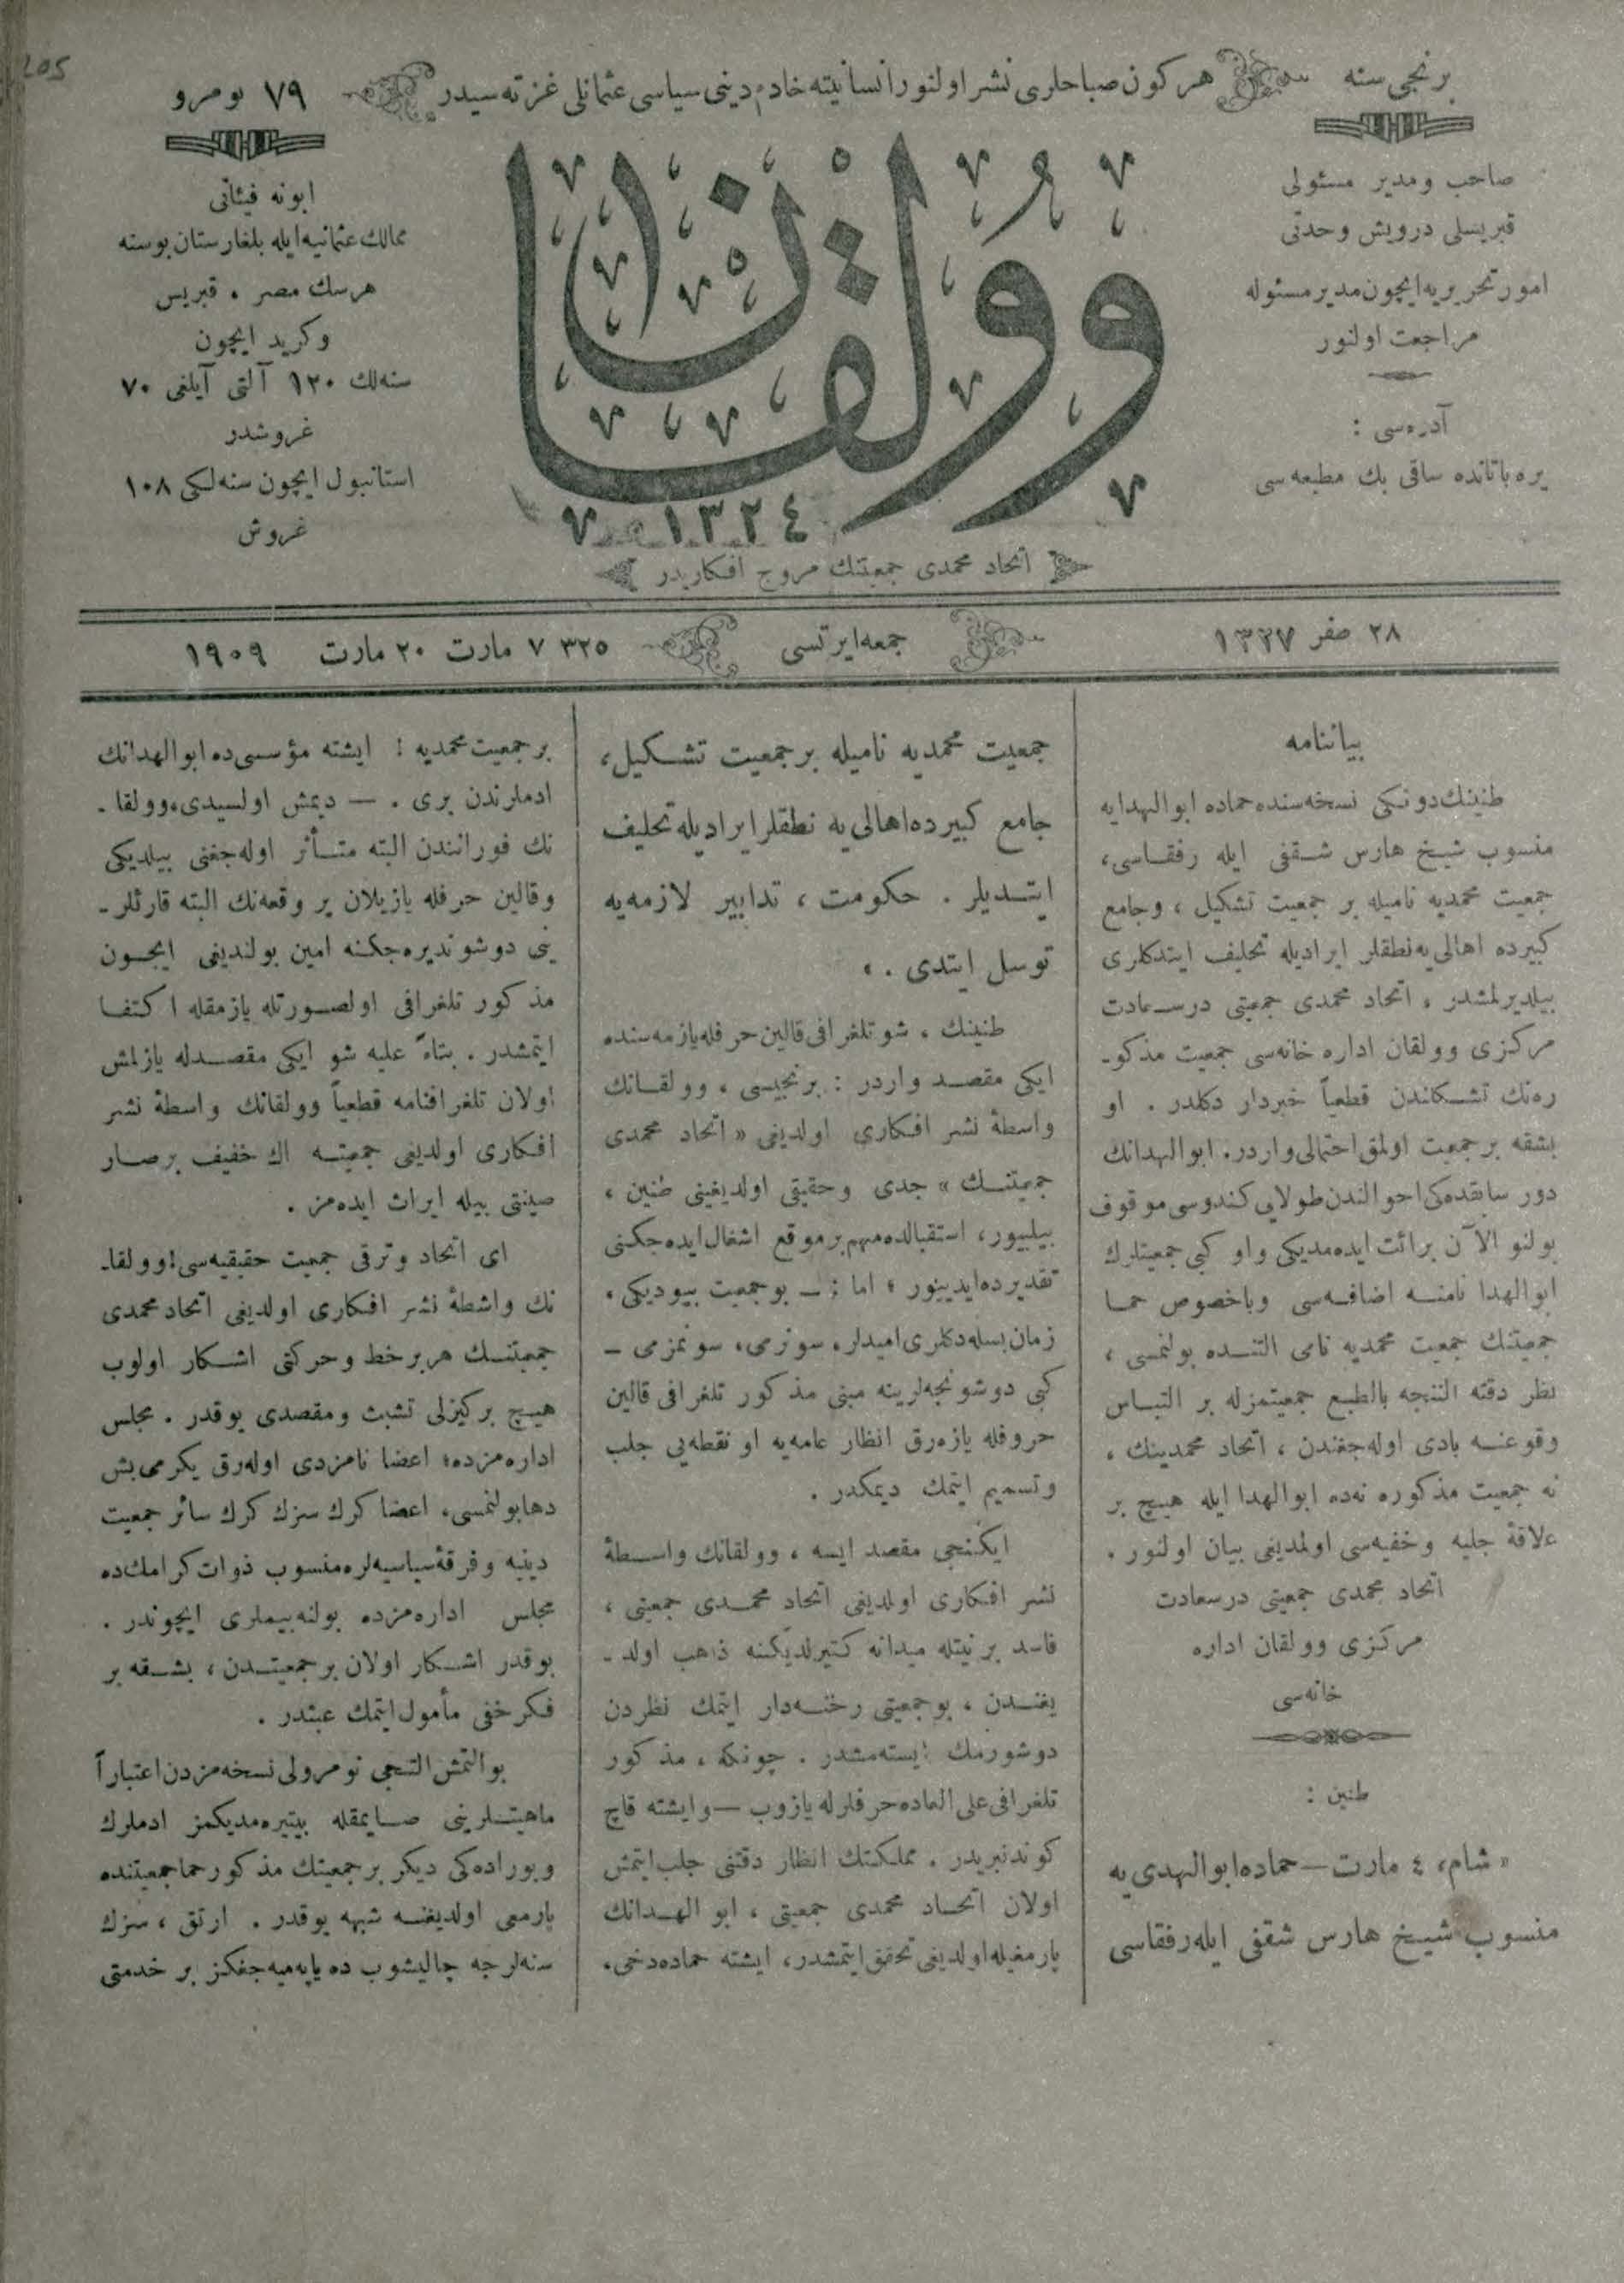 205
برنجی سنه
هر كون صباحلری نشر اولنور انسانیته خادم دینی سیاسی عثمانلی غزته سیدر
٧٩ نومرو
صاحب ومدیر مسئولی
قبریسلی درویش وحدتی
امور تحریریه ایچون مدیر مسئوله
مراجعت اولنور
آدرەسی :
یرەباتانده ساقی بك مطبعەسی
وولقان
١٣٢٤
اتحاد محمدی جمعیتنك مروج افكاریدر
ابونه فیئاتی
ممالك عثمانیه ایله بلغارستان بوسنه
هرسك مصر ، قبریس
وكرید ایچون
سنەلك ١٢٠ آلتی آیلغی ٧٠
غروشدر
استانبول ایچون سنەلكی ١٠٨
غروش
٢٨ صفر ١٣٢٧
جمعه ایرتسی
٣٢٥ ٧ مارت ٢٠ مارت ١٩٠٩
بیاننامه
طنینك دونكی نسخەسنده حماده ابوالهدایه
منسوب شیخ هارس شقفی ایله رفقاسی،
جمعیت محمدیه نامیله بر جمعیت تشكیل ، وجامع
كبیرده اهالی یه نطقلر ایرادیله تحلیف ایتدكلری
بیلدیرلمشدر . اتحاد محمدی جمعیتی درسعادت
مركزی وولقان اداره خانەسی جمعیت مذكو-
رەنك تشكلندن قطعیاً خبردار دكلدر . او
بشقه بر جمعیت اولمق احتمالی واردر. ابوالهدانك
دور سابقدەكی احوالندن طولایی كندوسی موقوف
بولنو الآن برائت ایدەمدیكی واو كبی جمعیتلرك
ابوالهدا نامنه اضافەسی وباخصوص حما
جمعیتنك جمعیت محمدیه نامی التنده بولنمسی ،
نظر دقته النجه بالطبع جمعیتمزله بر التباس
وقوعنه بادی اولەجغندن ، اتحاد محمدینك ،
نه جمعیت مذكوره نەده ابوالهدا ایله هیچ بر
علاقۀ جلیه وخفیەسی اولمدیغی بیان اولنور .
اتحاد محمدی جمعیتی درسعادت
مركزی وولقان اداره
خانەسی
طنین :
« شام، ٤ مارت — حماده ابوالهدی یه
منسوب شیخ هارس شقفی ایله رفقاسی
جمعیت محمدیه نامیله بر جمعیت تشكیل،
جامع كبیرده اهالی یه نطقلر ایرادیله تحلیف
ایتدیلر . حكومت ، تدابیر لازمەیه
توسل ایتدی . »
طنینك ، شو تلغرافی قالین حرفله یازمەسنده
ایكی مقصد واردر : برنجیسی ، وولقانك
واسطۀ نشر افكاری اولدیغی « اتحاد محمدی
جمعیتنك » جدی وحقیقی اولدیغینی طنین ،
بیلییور، استقبالده مهم بر موقع اشغال ایدەجكنی
تقدیردە ایدییور ؛ اما : — بو جمعیت بیودیكی ،
زمان بسلەدكلری امیدلر، سونرمی، سونمزمی —
كبی دوشونجەلرینه مبنی مذكور تلغرافی قالین
حروفله یازەرق انظار عامەیه او نقطەیی جلب
وتسمیم ایتمك دیمكدر .
ایكنجی مقصد ایسه ، وولقانك واسطۀ
نشر افكاری اولدیغی اتحاد محمدی جمعیتی ،
فاسد بر نیتله میدانه كتیرلدیكنه ذاهب اولد-
یغندن ، بو جمعیتی رخنەدار ایتمك نظردن
دوشورمك ایستەمشدر . چونكه ، مذكور
تلغرافی علی العاده حرفلرله یازوب — وایشته قاچ
كوندنبریدر . مملكتك انظار دقتنی جلب ایتمش
اولان اتحاد محمدی جمعیتی ، ابو الهدانك
پارمغیله اولدیغی تحقق ایتمشدر، ایشته حمادەدخی،
بر جمعیت محمدیه ! ایشته مؤسسی ده ابوالهدانك
ادملرندن بری . — دیمش اولسیدی، وولقا-
نك فوراننـدن البته متأثر اولەجغنی بیلدیكی
وقالین حرفله یازیلان بر وقعەنك البته قارئلر-
ینی دوشوندیرەجكنه امین بولندیغی ایچون
مذكور تلغرافی اولصورتله یازمقله اكتفا
ایتمشدر . بناءً علیه شو ایكی مقصدله یازلمش
اولان تلغرافنامه قطعیاً وولقانك واسطۀ نشر
افكاری اولدیغی جمعیته اك خفیف بر صار
صینتی بیله ایراث ایدەمز .
ای اتحاد وترقی جمعیت حقیقیەسی! وولقا-
نك واشطۀ نشر افكاری اولدیغی اتحاد محمدی
جمعیتنك هر بر خط وحركتی اشكار اولوب
هیچ بر كیزلی تشبث ومقصدی یوقدر . مجلس
ادارەمزده؛ اعضا نامزدی اولەرق یكرمی بش
دها بولنمسی، اعضا كرك سزك كرك سائر جمعیت
دینیه وفرقۀ سیاسیەلره منسوب ذوات كرامك ده
مجلس ادارەمزده بولنەبیملری ایچوندر .
بوقدر اشكار اولان بر جمعیتدن ، بشقه بر
فكر خفی مأمول ایتمك عبثدر .
بو التمش التنجی نومرولی نسخەمزدن اعتباراً
ماهیتلرینی صایمقله بیتیرەمدیكمز ادملرك
وبورادەكی دیكر بر جمعیتك مذكور حما جمعیتنده
پارمغی اولدیغنه شبهه یوقدر . ارتق ، سزك
سنەلرجه چالیشوب ده یاپەمیەجغكز بر خدمتی